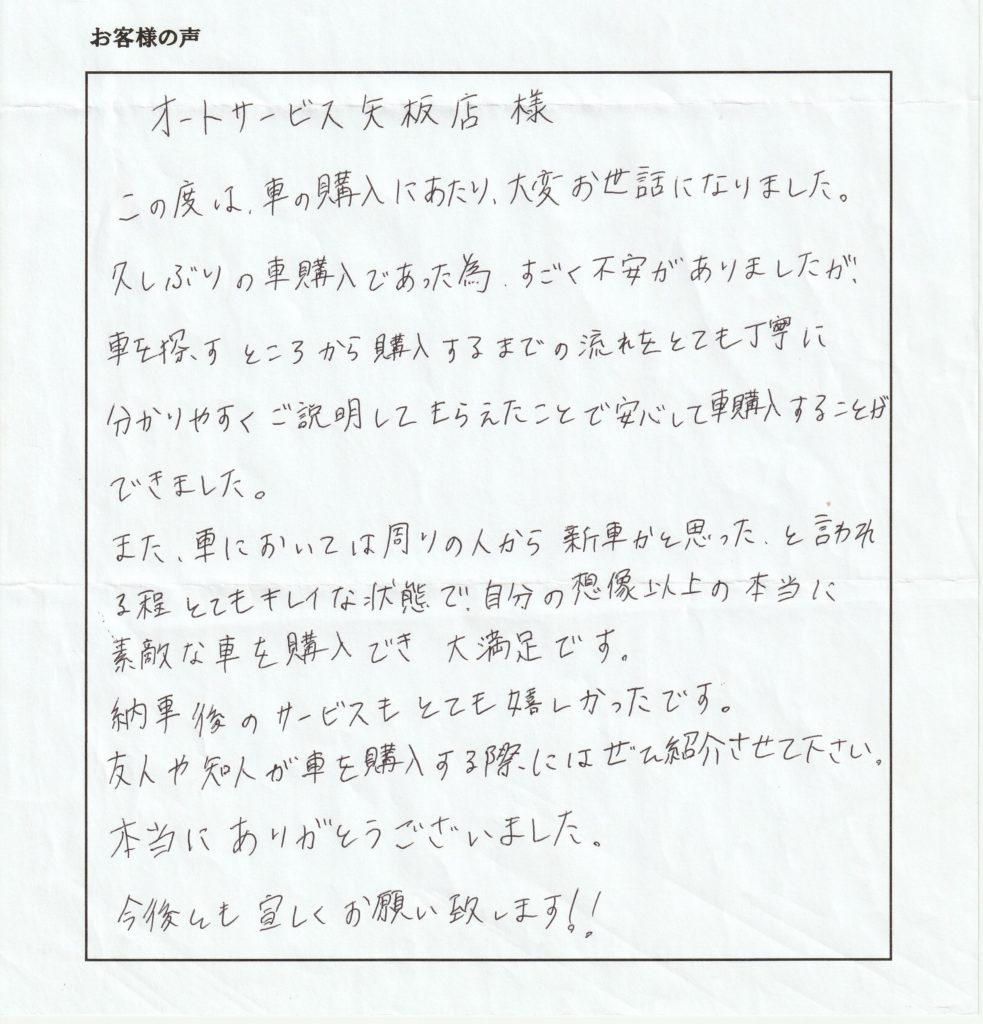 お客様の声
オートサービス矢板店 様
この度は、車の購入にあたり、大変お世話になりました。
久しぶりの車購入であった為、すごく不安がありましたが、
車を探すところから購入するまでの流れをとても丁寧に
分かりやすくご説明してもらえたことで安心して車購入することが
できました。
また、車においては周りの人から新車かと思った、と言われ
る程とてもキレイな状態で、自分の想像以上の本当に
素敵な車を購入でき 大満足です。
納車後のサービスもとても嬉しかったです。
友人や知人が車を購入する際にはぜひ紹介させて下さい。
本当にありがとうございました。
今後とも宜しくお願い致します!!